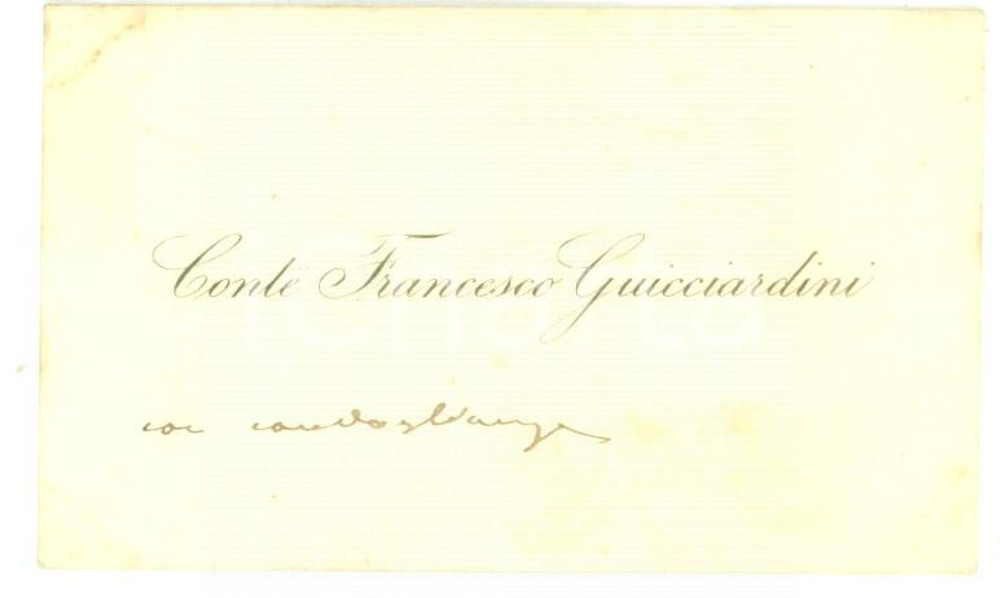 Conte Francesco Guicciardini
con condoglianze